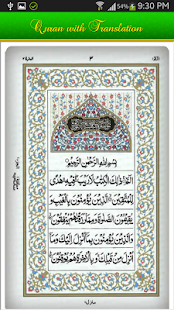 9:30 PM
Quran with Translation
٣
بِسْمِ اللّٰهِ الرَّحْمٰنِ الرَّحِيْمِ
الٓمّٓ ذٰلِكَ الْكِتٰبُ لَا رَيْبَ فِيْهِ هُدًى
لِّلْمُتَّقِيْنَ الَّذِيْنَ يُؤْمِنُوْنَ بِالْغَيْبِ وَ
يُقِيْمُوْنَ الصَّلٰوةَ وَمِمَّا رَزَقْنٰهُمْ يُنْفِقُوْنَ
وَالَّذِيْنَ يُؤْمِنُوْنَ بِمَآ اُنْزِلَ اِلَيْكَ وَمَآ
اُنْزِلَ مِنْ قَبْلِكَ وَبِالْاٰخِرَةِ هُمْ يُوْقِنُوْنَ